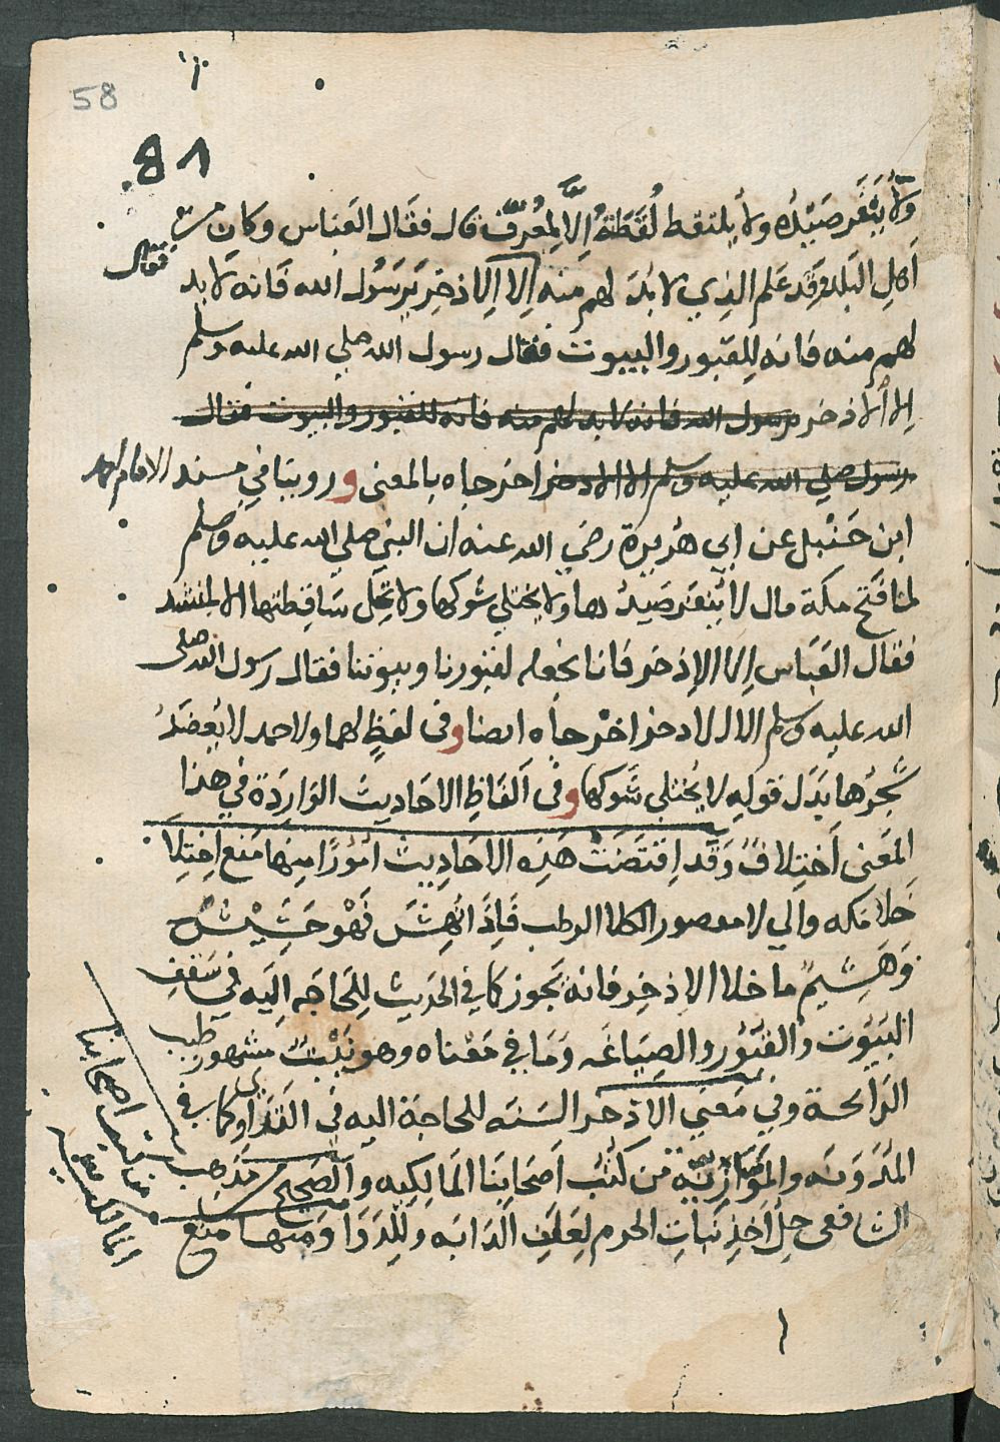 58
81
ولا ينفر صيده ولا يلتقط لقطته الا لمعرف قال فقال العباس وكان من
اهل البلد وقد علم الذي لا بد لهم منه الا الاذخر يرسول الله فانه لا بد
لهم منه فانه للقبور والبيوت فقال رسول الله صلي الله عليه وسلم
الا الاذخر يرسول الله فانه لا بد لهم منه فانه للقبور والبيوت فقال
رسول صلي الله عليه وسلم الا الاذخر اخرجاه بالمعنى وروينا في مسند الامام احمد
ابن حنبل عن ابي هريرة رضي الله عنه ان النبي صلي الله عليه وسلم
لما فتح مكة قال لا ينفر صيدها ولا يختلي شوكها ولا تحل ساقطتها الا لمنشد
فقال العباس الا الاذخر فانا نجعله لقبورنا وبيوتنا فقال رسول الله صلى
الله عليه وسلم الا الاذخر اخرجاه ايضا وفى لفظ لهما ولاحمد لا يعضد
شجرها بدل قوله لا يختلي شوكها وفى الفاظ الاحاديث الواردة في هذا
المعنى اختلاف وقد اقتضت هذه الاحاديث امورا منها منع اختلا
خلا مكه والخلا مقصور الكلا الرطب فاذا فهو حشيش
وهشيم ما خلا الاذخر فانه يجوز كما في الحديث للحاجه اليه في سقف
البيوت والقبور والصياغه وما في معناه وهو نبت مشهور طيب
الرائحة وفي معنى الاذخر السنه للحاجة اليه فى التداوي كما في
المدونه والموازية من كتب اصحابنا المالكيه والصحيح مذهب
الشافعى حل اخذ نبات الحرم لعلف الدابه وللدوا ومنها منع
من كتب اصحابنا
المالكية